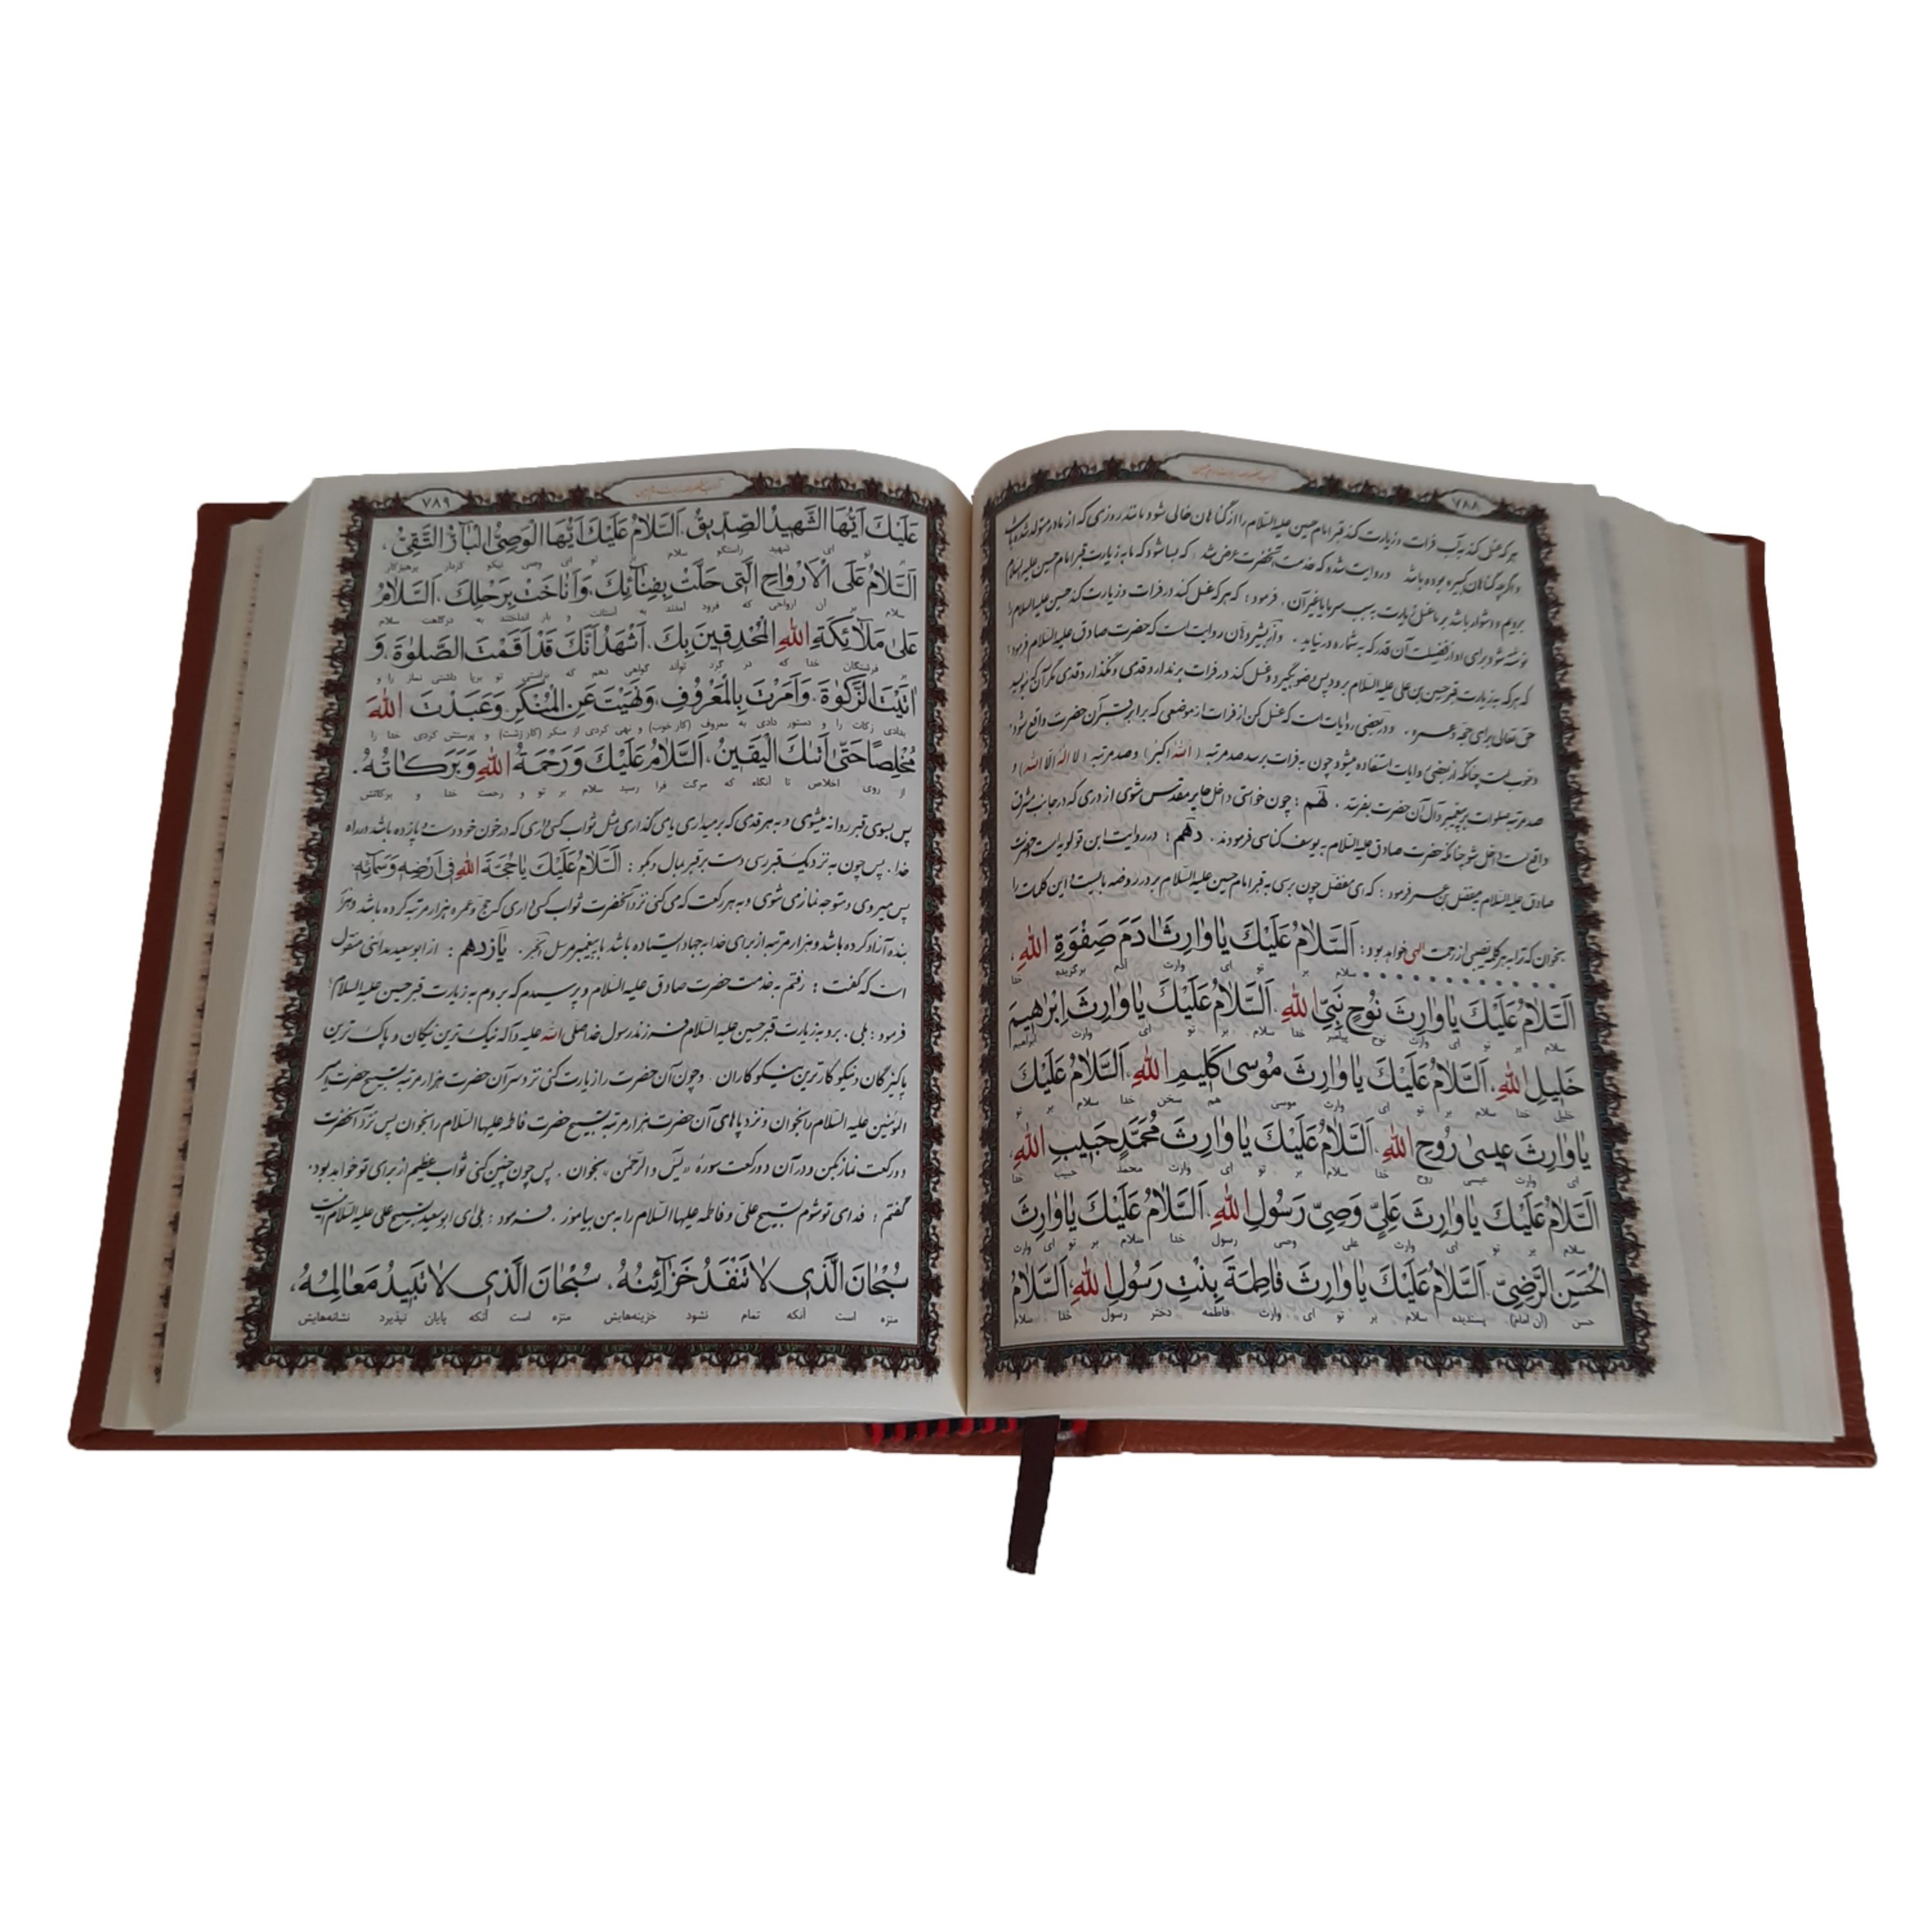 ٧٨٨
هر که غسل کند به آب فرات و زیارت کند قبر امام حسین علیه السلام را از گناهان خالی شود مانند روزی که از مادر متولد شده باشد
و اگرچه گناهان کبیره بوده باشد و روایت شده که خدمت آنحضرت عرض شد : که بسا شود که ما به زیارت قبر امام حسین علیه السلام
برویم و دشوار باشد بر ما غسل زیارت به سبب سرما یا غیر آن . فرمود : که هر که غسل کند در فرات و زیارت کند حسین علیه السلام را
نوشته شود برای او از فضیلت آن قدر که به شمار در نیاید . و از بشیر دهان روایت است که حضرت صادق علیه السلام فرمود :
که هر که به زیارت قبر حسین بن علی علیه السلام برود پس وضو بگیرد و غسل کند در فرات برندارد قدمی و نگذارد قدمی مگر آنکه بنویسد
حق تعالی برای او حجه و عمره . و در بعضی روایات است که غسل کن از فرات از موضعی که برابر قبر آن حضرت واقع شود.
و خوب است چنانکه از بعضی روایات استفاده میشود چون به فرات برسد صد مرتبه ( الله اکبر ) و صد مرتبه ( لا اله الا الله ) و
صد مرتبه صلوات بر پیغمبر و آل آن حضرت بفرستد . نهم : چون خواستی داخل حایر مقدس شوی از دری که در جانب مشرق
واقع است داخل شو چنانکه حضرت صادق علیه السلام به یوسف کناسی فرمودند . دهم : در روایت ابن قولویه است که حضرت
صادق علیه السلام به مفضل بن عمر فرمود : که ای مفضل چون برسی به قبر امام حسین علیه السلام بر در روضه بایست و این کلمات را
بخوان که ترا به هر کلمه نصیبی از رحمت الهی خواهد بود : اَلسَّلامُ عَلَيْكَ يا وارِثَ ادَمَ صَفْوَةِ اللهِ ،
سلام بر تو ای وارث آدم برگزیده خدا
اَلسَّلامُ عَلَيْكَ يا وارِثَ نُوحٍ نَبِيِّ اللهِ ، اَلسَّلامُ عَلَيْكَ يا وارِثَ اِبْرٰهيمَ
سلام بر تو ای وارث نوح پیامبر خدا سلام بر تو ای وارث ابراهیم
خَليلِ اللهِ ، اَلسَّلامُ عَلَيْكَ يا وارِثَ مُوسىٰ كَليمِ اللهِ ، اَلسَّلامُ عَلَيْكَ
خلیل خدا سلام بر تو ای وارث موسی هم سخن خدا سلام بر تو
يا وارِثَ عيسىٰ رُوحِ اللهِ ، اَلسَّلامُ عَلَيْكَ يا وارِثَ مُحَمَّدٍ حَبيبِ اللهِ ،
ای وارث عیسی روح خدا سلام بر تو ای وارث محمد حبیب خدا
اَلسَّلامُ عَلَيْكَ يا وارِثَ عَلِيٍّ وَصِيِّ رَسُولِ اللهِ ، اَلسَّلامُ عَلَيْكَ يا وارِثَ
سلام بر تو ای وارث علی وصی رسول خدا سلام بر تو ای وارث
الْحَسَنِ الرَّضِيِّ ، اَلسَّلامُ عَلَيْكَ يا وارِثَ فاطِمَةَ بِنْتِ رَسُولِ اللهِ ، اَلسَّلامُ
حسن (آن امام) پسندیده سلام بر تو ای وارث فاطمه دختر رسول خدا سلام
٧٨٩
عَلَيْكَ اَيُّهَا الشَّهيدُ الصِّدّيقُ ، اَلسَّلامُ عَلَيْكَ اَيُّهَا الْوَصِيُّ الْبارُّ التَّقِيُّ ،
تو ای شهید راستگو سلام بر تو ای وصی نیکو کردار پرهیزکار
اَلسَّلامُ عَلَى الْاَرْواحِ الَّتى حَلَّتْ بِفِنائِكَ ، وَاَناخَتْ بِرَحْلِكَ ، اَلسَّلامُ
سلام بر آن ارواحی که فرود آمدند به آستانت و بار انداختند به درگاهت سلام
عَلىٰ مَلآئِكَةِ اللهِ الْمُحْدِقينَ بِكَ ، اَشْهَدُ اَنَّكَ قَدْ اَقَمْتَ الصَّلوٰةَ ، وَ
بر فرشتگان خدا که در گرد تواند گواهی دهم که براستی تو برپا داشتی نماز را و
اٰتَيْتَ الزَّكوٰةَ ، وَاَمَرْتَ بِالْمَعْرُوفِ ، وَنَهَيْتَ عَنِ الْمُنْكَرِ وَعَبَدْتَ اللهَ
بدادی زکات را و دستور دادی به معروف (کار خوب) و نهی کردی از منکر (کار زشت) و پرستش کردی خدا را
مُخْلِصًا حَتّىٰ اَتٰىكَ الْيَقينُ ، اَلسَّلامُ عَلَيْكَ وَرَحْمَةُ اللهِ وَبَرَكاتُهُ .
از روی اخلاص تا آنگاه که مرگت فرا رسید سلام بر تو و رحمت خدا و برکاتش
پس بسوی قبر روانه میشوی و به هر قدمی که بر میداری یا می گذاری مثل ثواب کسی داری که در خون خود دست و پا زده باشد در راه
خدا . پس چون به نزدیک قبر رسی دست بر قبر بمال و بگو : اَلسَّلامُ عَلَيْكَ يا حُجَّةَ اللهِ فى اَرْضِهِ وَسَمآئِهِ .
پس میروی و متوجه نماز می شوی و به هر رکعت که می کنی نزد آنحضرت ثواب کسی داری که هزار حج و عمره هزار مرتبه کرده باشد و هزار
بنده آزاد کرده باشد و هزار مرتبه از برای خدا به جهاد ایستاده باشد با پیغمبر مرسل الخبر . یازدهم : از ابو سعید مدائنی منقول
است که گفت : رفتم به خدمت حضرت صادق علیه السلام و پرسیدم که بروم به زیارت قبر حسین علیه السلام؟
فرمود : بلی . برو به زیارت قبر حسین علیه السلام فرزند رسول خدا صلی الله علیه و آله نیک ترین نیکان و پاک ترین
پاکیزگان و نیکوکار ترین نیکوکاران . و چون آن حضرت را زیارت کنی نزد سر آن حضرت هزار مرتبه تسبیح حضرت امیر
المؤمنین علیه السلام را بخوان و نزد پاهای آن حضرت هزار مرتبه تسبیح حضرت فاطمه علیها السلام را بخوان پس نزد آنحضرت
دو رکعت نماز بکن و در آن دو رکعت سوره «یس و الرحمن» بخوان . پس چون چنین کنی ثواب عظیم از برای تو خواهد بود.
گفتم : فدای تو شوم تسبیح علی و فاطمه علیهما السلام را به من بیاموز . فرمود : بلی ای ابو سعید تسبیح علی علیه السلام اینست
سُبْحانَ الَّذى لا تَنْفَدُ خَزآئِنُهُ ، سُبْحانَ الَّذى لا تَبيدُ مَعالِمُهُ ،
منزه است آنکه تمام نشود خزینه‌هایش منزه است آنکه پایان نپذیرد نشانه‌هایش